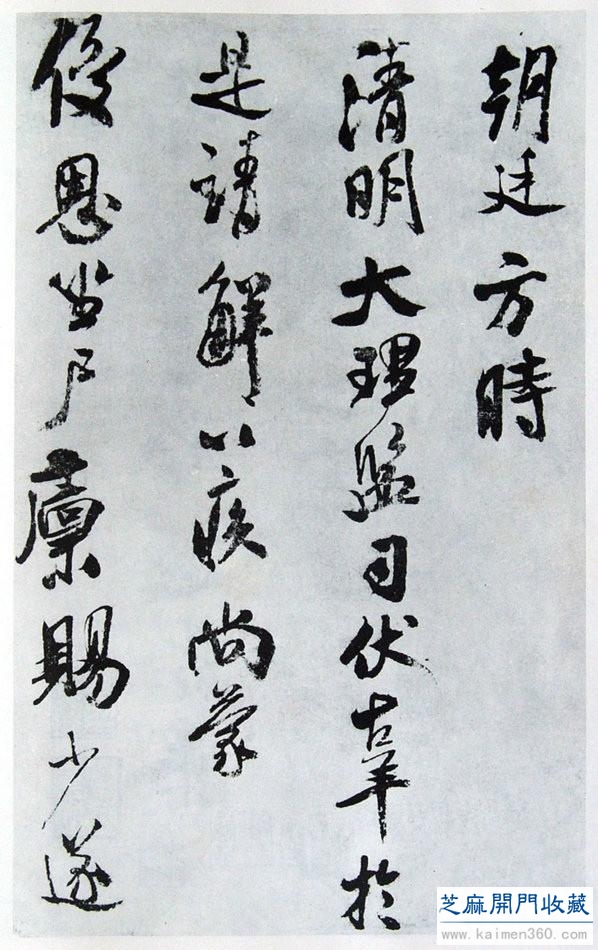 朝廷方時
清明大理監司伏辜於
是請解以疾尚蒙
優恩尸廩賜少遂
芝麻開門收藏
www.kaimen360.com